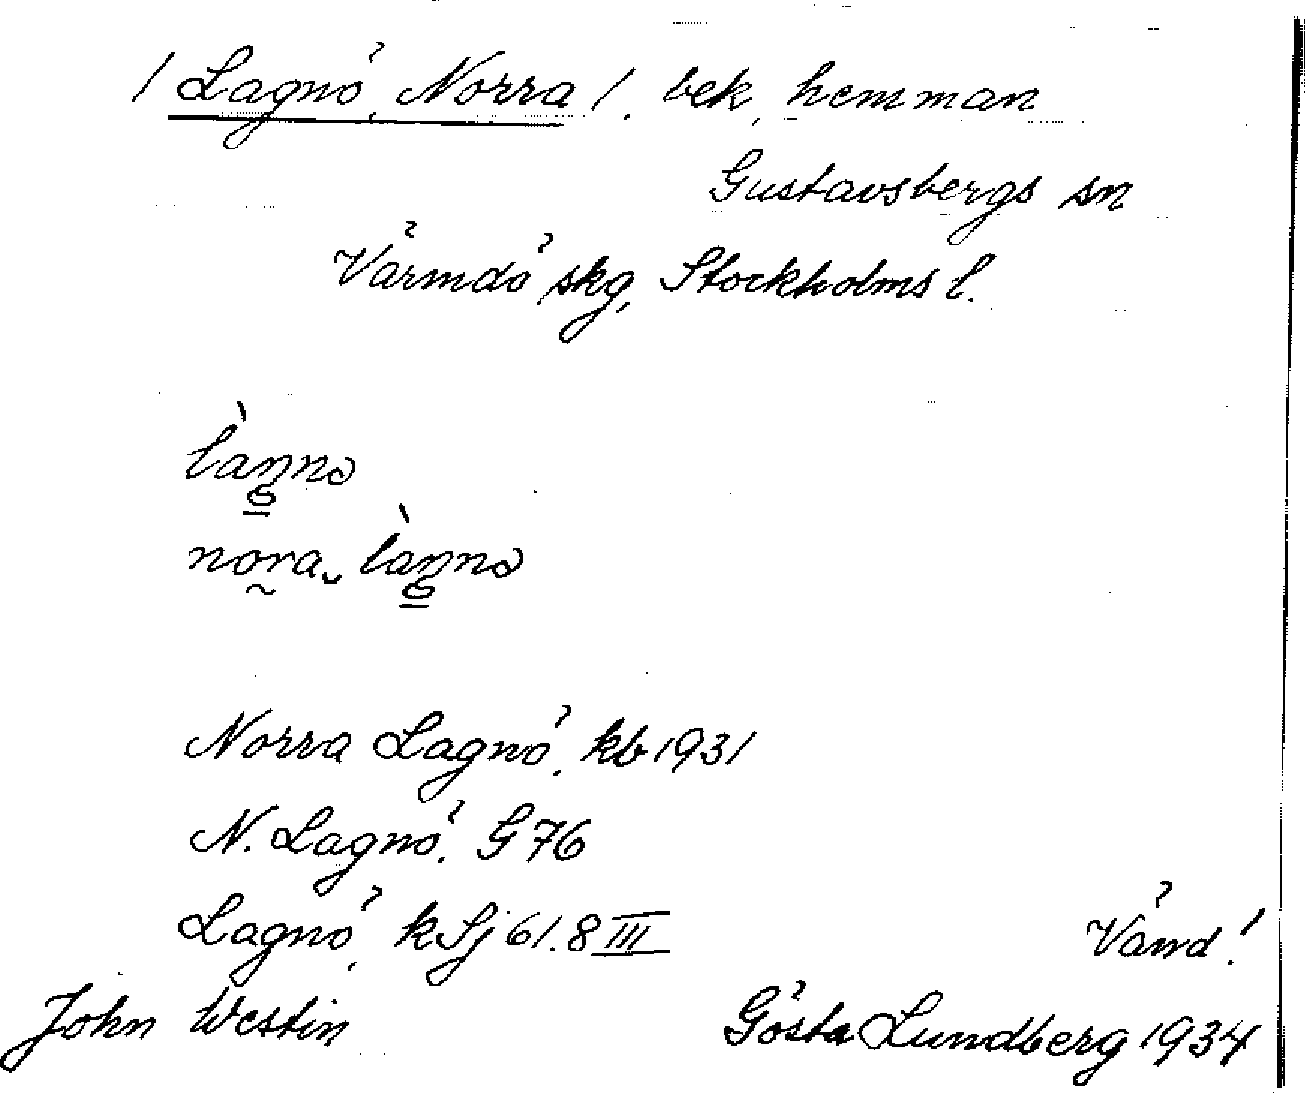 / Lagnö, Norra /. bek, hemman
Gustavsbergs sn
Värmdö skg, Stockholms l.
Norra Lagnö, kb 1931
N. Lagnö, G 76
Lagnö, k Sj 61. 8 III
Vänd!
John Westin
Gösta Lundberg 1934